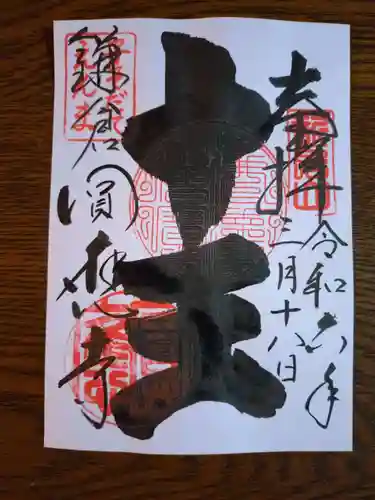 奉拝
令和六年
三月十八日
十王
鎌倉圓應寺